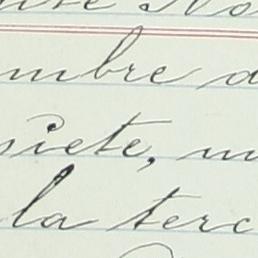 mbre d
siete, m
la terc